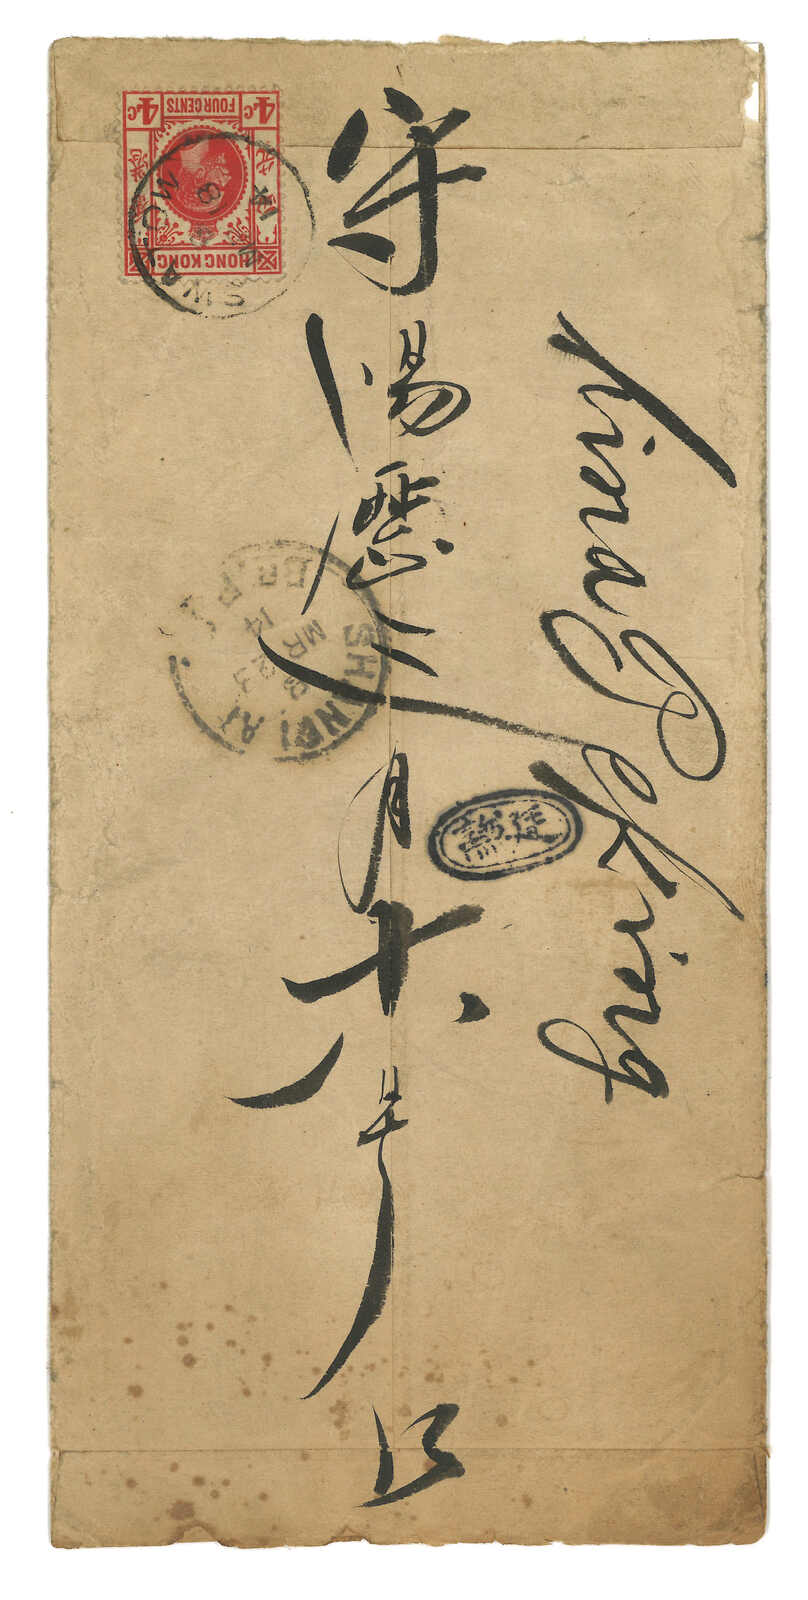 4c FOUR CENTS 4c
HONG KONG
SWATOW
守
陽歷三月十八号
hina Peking
SHANGHAI BR. P.
MR 23
14